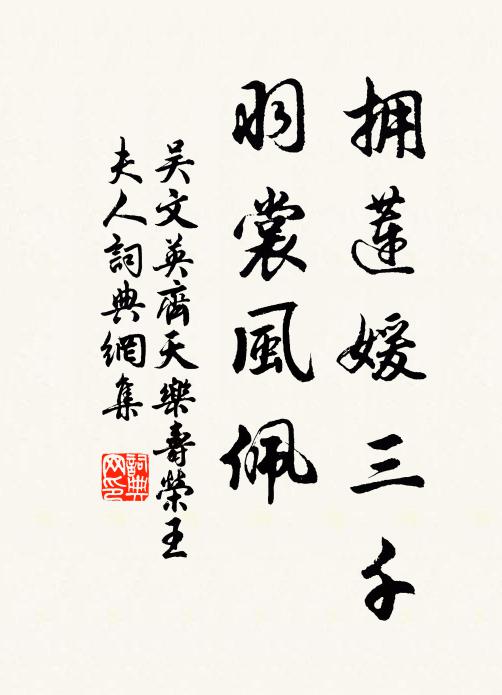 拥蓮媛三千
羽裳風佩
吴文英齊天樂壽榮王
夫人詞典網集
詞典网印